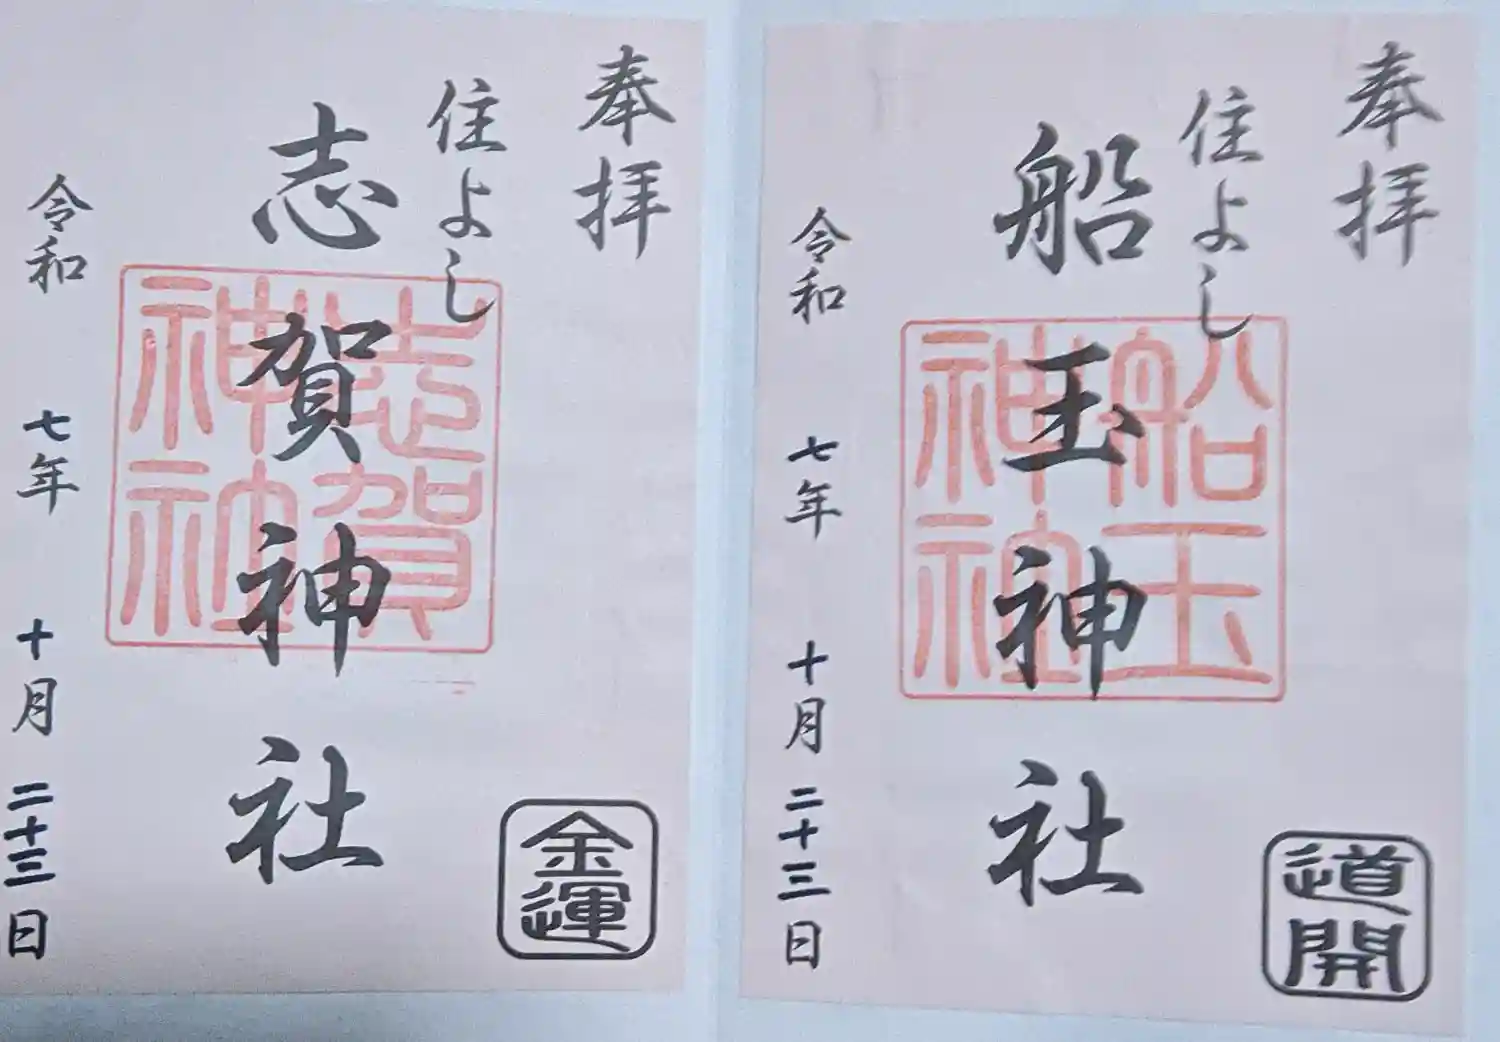 奉拝
住よし
船玉神社
船玉神社
令和 七年 十月 二十三日
道開
奉拝
住よし
志賀神社
志賀神社
令和 七年 十月 二十三日
金運